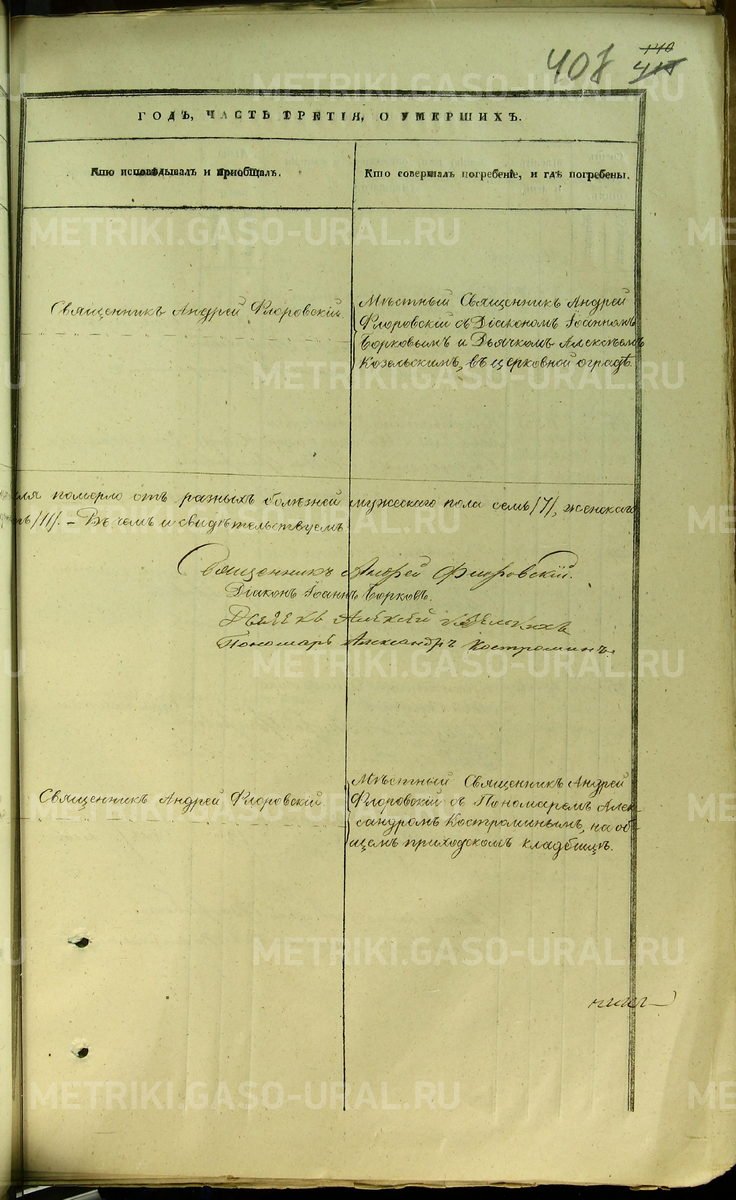 408
ГОДЪ, ЧАСТЬ ТРЕТІЯ, О УМЕРШИХЪ.
Кто исповѣдывалъ и пріобщалъ.
Кто совершалъ погребеніе, и гдѣ погребены.
Священникъ Андрей Флоровскій
Мѣстный Священникъ Андрей
Флоровскій съ Діакономъ Іоанномъ
Борковымъ и Дьячкомъ Алексѣемъ
Козельскимъ, въ церковной оградѣ.
померло отъ разныхъ болѣзней мужескаго пола семь /7/, женскаго
/11/. – Въ чемъ и свидѣтельствуемъ
Священникъ Андрей Флоровскій.
Діаконъ Іоаннъ Борковъ.
Дьячекъ Алексѣй
Пономарь Александръ Костроминъ.
Священникъ Андрей Флоровскій
Мѣстный Священникъ Андрей
Флоровскій съ Пономаремъ Алек-
сандромъ Костроминымъ, на об-
щемъ приходскомъ кладбищѣ.
METRIKI.GASO-URAL.RU